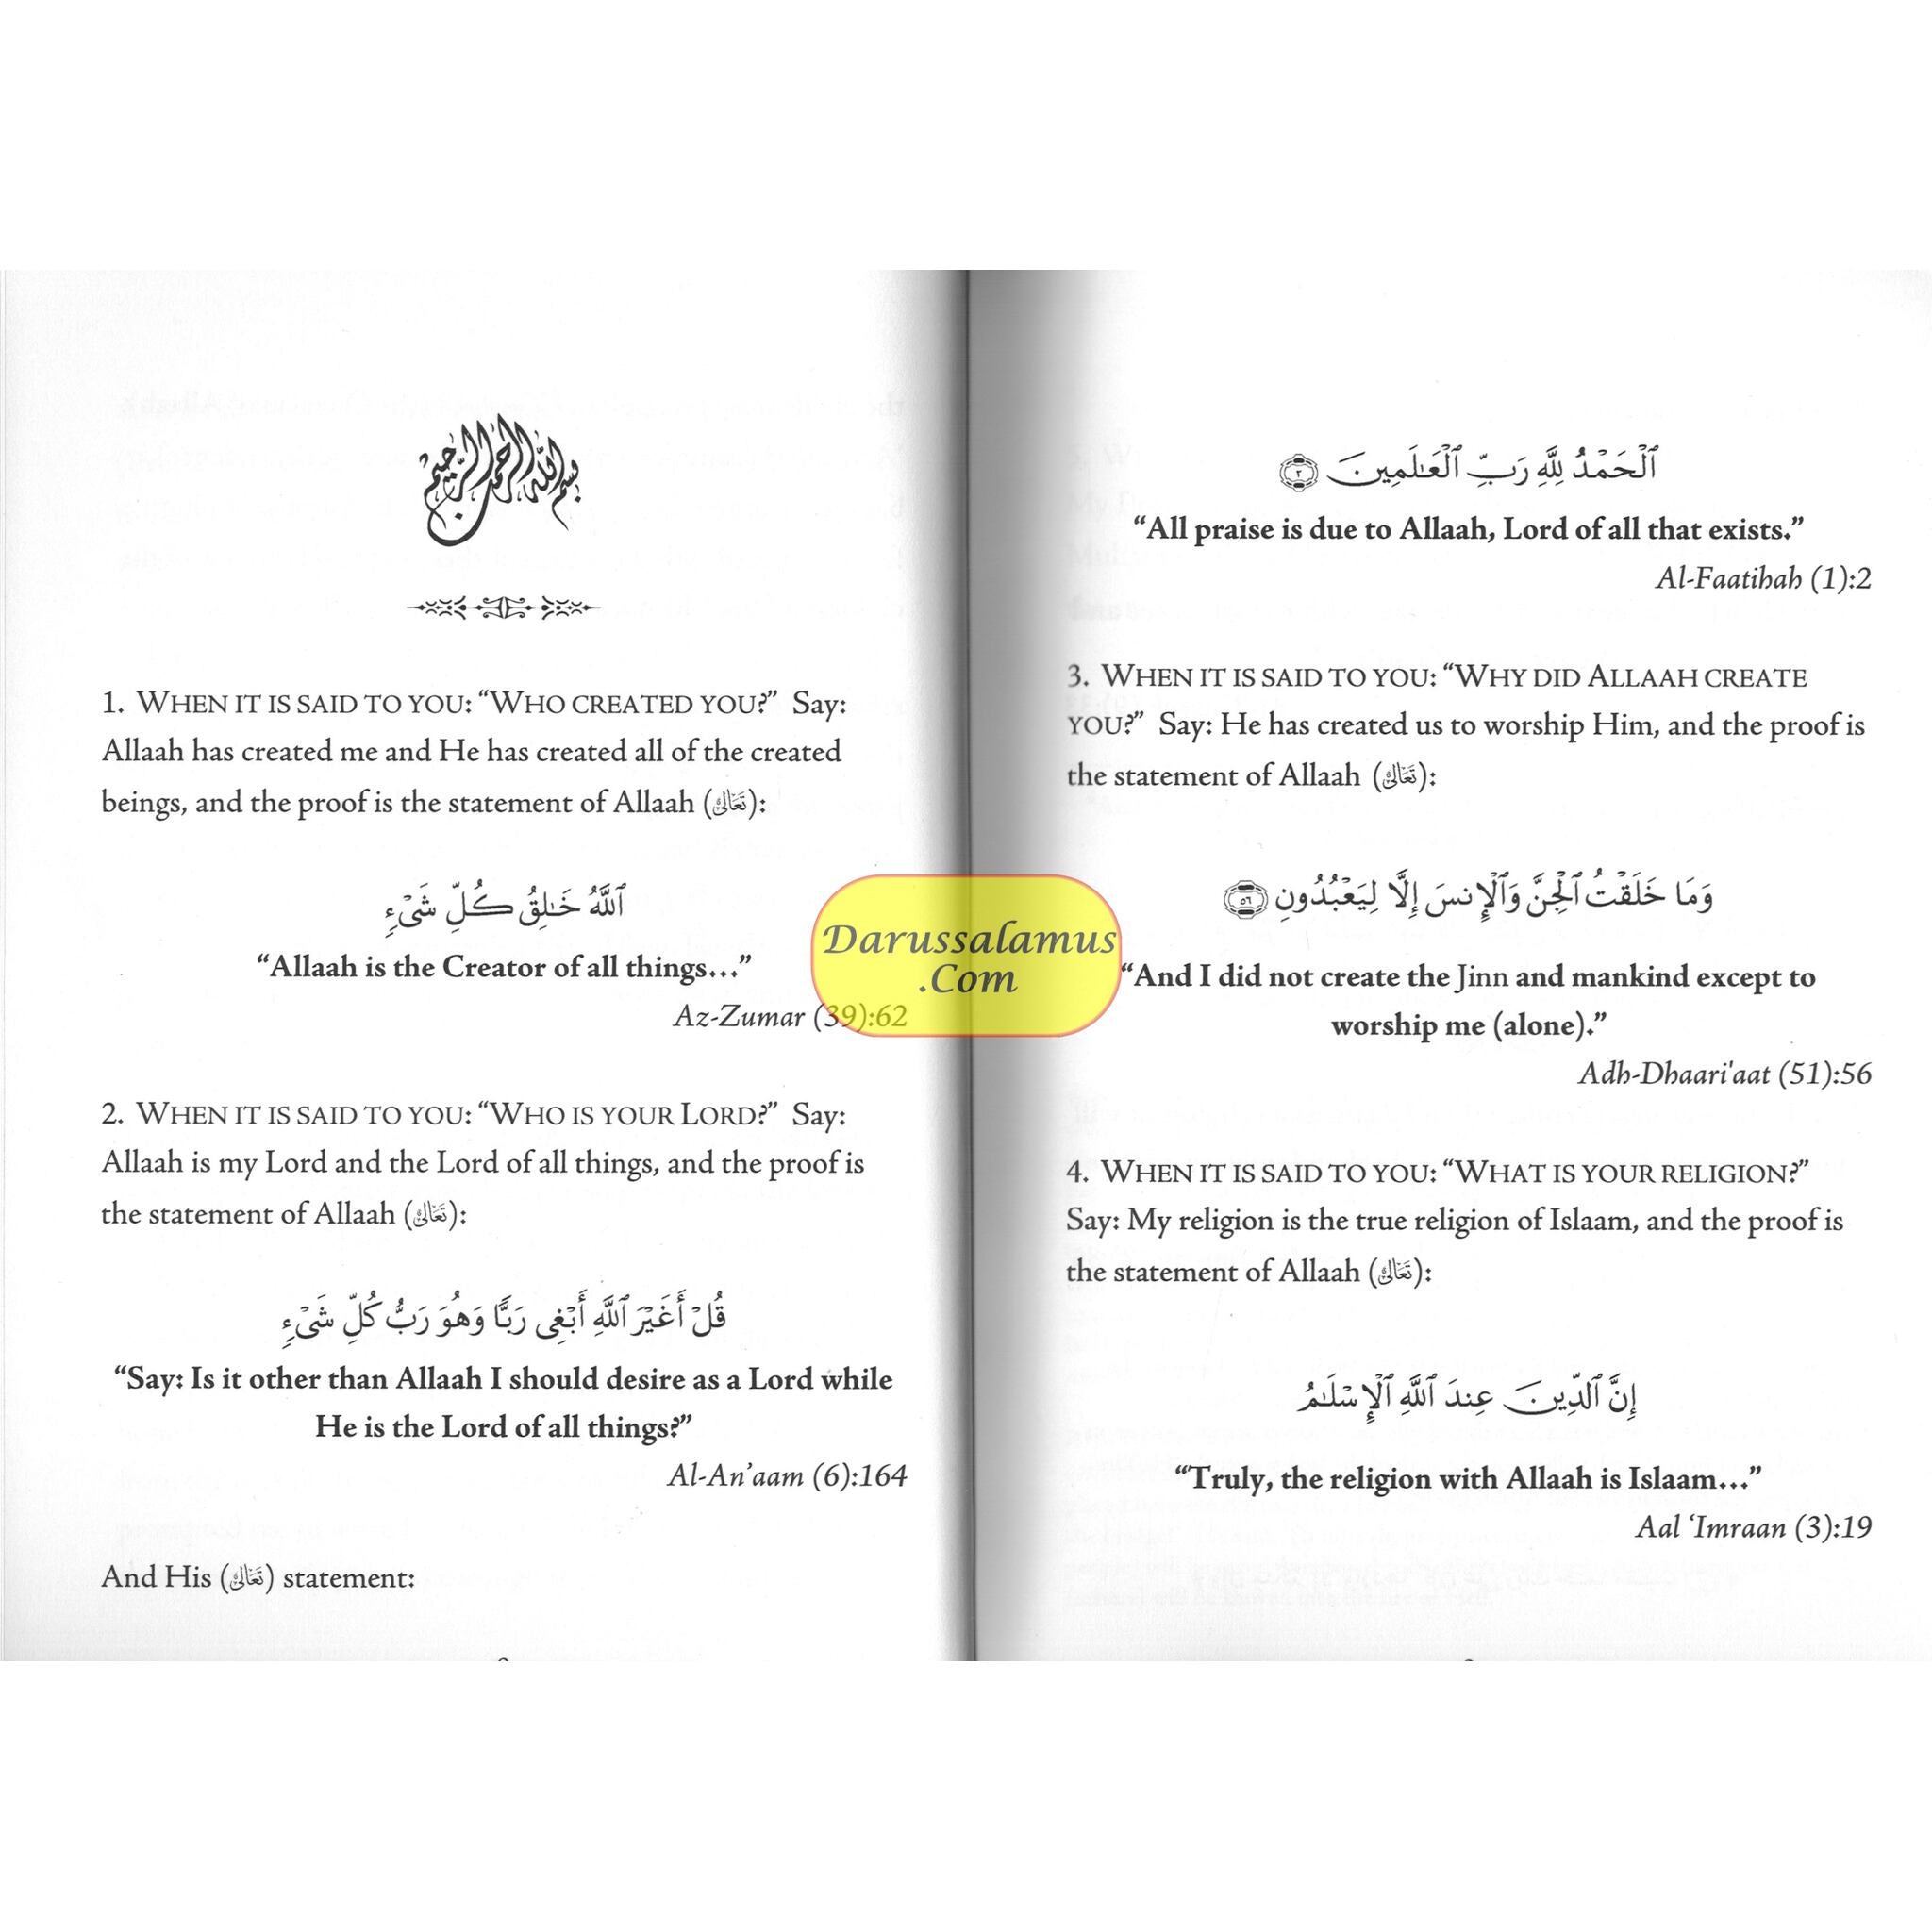 بسم الله الرحمن الرحيم
1. WHEN IT IS SAID TO YOU: “WHO CREATED YOU?” Say:
Allaah has created me and He has created all of the created
beings, and the proof is the statement of Allaah (تَعَالَى):
ٱللَّهُ خَـٰلِقُ كُلِّ شَىْءٍ
“Allaah is the Creator of all things...”
Az-Zumar (39):62
2. WHEN IT IS SAID TO YOU: “WHO IS YOUR LORD?” Say:
Allaah is my Lord and the Lord of all things, and the proof is
the statement of Allaah (تَعَالَى):
قُلْ أَغَيْرَ ٱللَّهِ أَبْغِى رَبًّا وَهُوَ رَبُّ كُلِّ شَىْءٍ
“Say: Is it other than Allaah I should desire as a Lord while
He is the Lord of all things?”
Al-An’aam (6):164
And His (تَعَالَى) statement:
ٱلْحَمْدُ لِلَّهِ رَبِّ ٱلْعَـٰلَمِينَ ٢
“All praise is due to Allaah, Lord of all that exists.”
Al-Faatihah (1):2
3. WHEN IT IS SAID TO YOU: “WHY DID ALLAAH CREATE
YOU?” Say: He has created us to worship Him, and the proof is
the statement of Allaah (تَعَالَى):
وَمَا خَلَقْتُ ٱلْجِنَّ وَٱلْإِنسَ إِلَّا لِيَعْبُدُونِ ٥٦
“And I did not create the Jinn and mankind except to
worship me (alone).”
Adh-Dhaari'aat (51):56
4. WHEN IT IS SAID TO YOU: “WHAT IS YOUR RELIGION?”
Say: My religion is the true religion of Islaam, and the proof is
the statement of Allaah (تَعَالَى):
إِنَّ ٱلدِّينَ عِندَ ٱللَّهِ ٱلْإِسْلَـٰمُ
“Truly, the religion with Allaah is Islaam...”
Aal ‘Imraan (3):19
Darussalamus
.Com